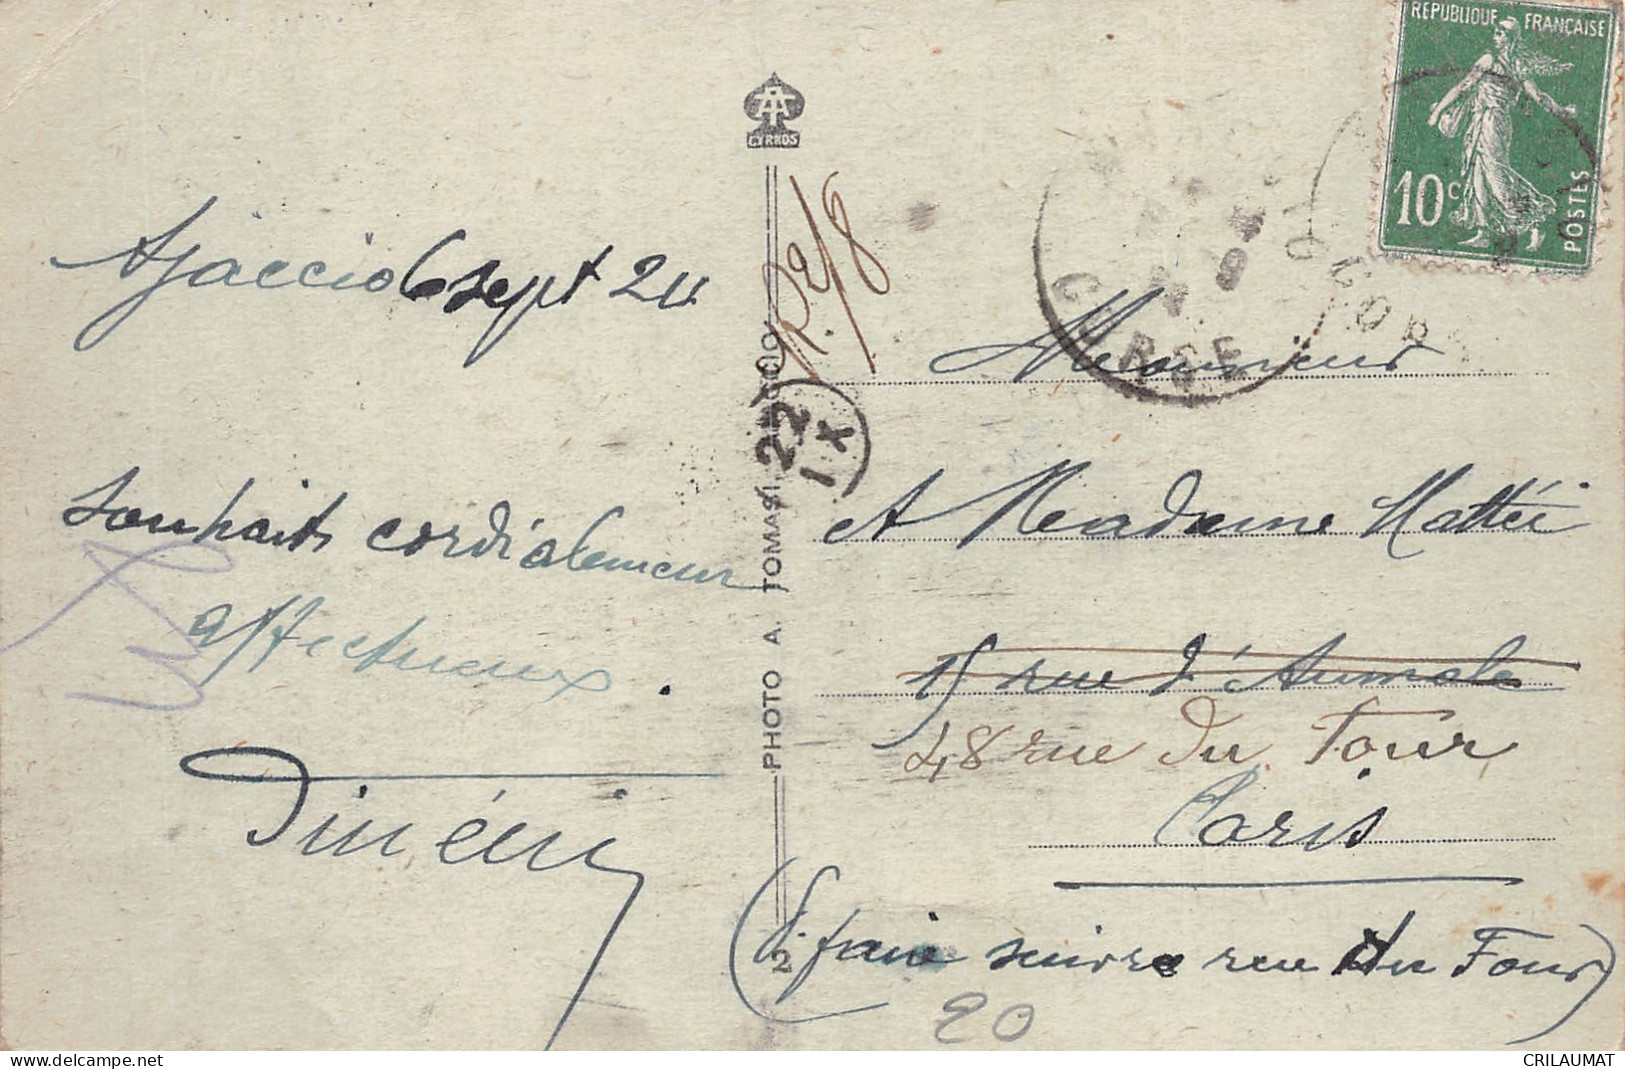 REPUBLIQUE FRANÇAISE
10c POSTES
CYRNOS
Ajaccio 6 sept 24
R.2/8
CORSE
22
IX
Monsieur
et Madame Mattéi
15 rue d'Aumale
48 rue du Four
Paris
(S. faire suivre rue du Four)
souhaits cordialement
affectueux.
PHOTO A. TOMASI, AJACCIO
2
20
CRILAUMAT